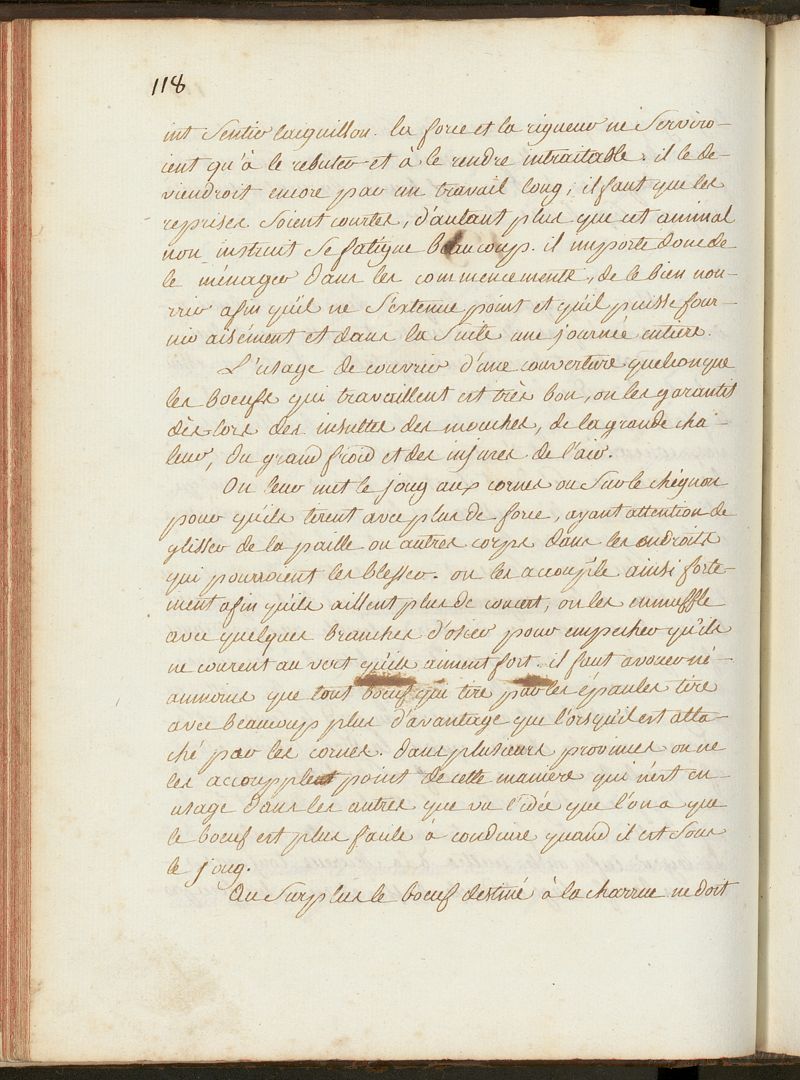 118
int sentir laiguillon. la force et la rigueur ne serviro-
ient qu'à le rebuter et à le rendre intraitable, il le de-
viendroit encore par un travail long; il faut que les
reprises soient courtes, d'autant plus que cet animal
non instruit se fatigue beaucoup. il importe donc de
le ménager dans les commencements, de le bien nou-
rrir afin qu'il ne s'extenue point et qu'il puisse four-
nir aisément et dans la suite une journée entiere.
L'usage de couvrir d'une couverture quelconque
les boeufs qui travaillent est très bon, on les garantit
dès lors des insultes des mouches, de la grande cha-
leur, du grand froid et des injures de l'air.
On leur met le joug aux cornes ou sur le chégnon
pour qu'ils tirent avec plus de force, ayant attention de
glisser de la paille ou autres corps dans les endroits
qui pourroient les blesser. on les accouple ainsi forte-
ment afin qu'ils aillent plus de concert, on les enmuffle
avec quelques branches d'osier pour empecher qu'ils
ne courent au vert qu'ils aiment fort. il faut avouer né-
anmoins que tout boeuf qui tire par les épaules tire
avec beaucoup plus d'avantage que l'orsqu'il est atta-
ché par les cornes. dans plusieurs provinces on ne
les accouplent point de cette maniere qui n'est en
usage dans les autres que vu l'idée que l'on a que
le boeuf est plus facile à conduire quand il est sous
le joug.
Au surplus le boeuf destiné à la charrue ne doit